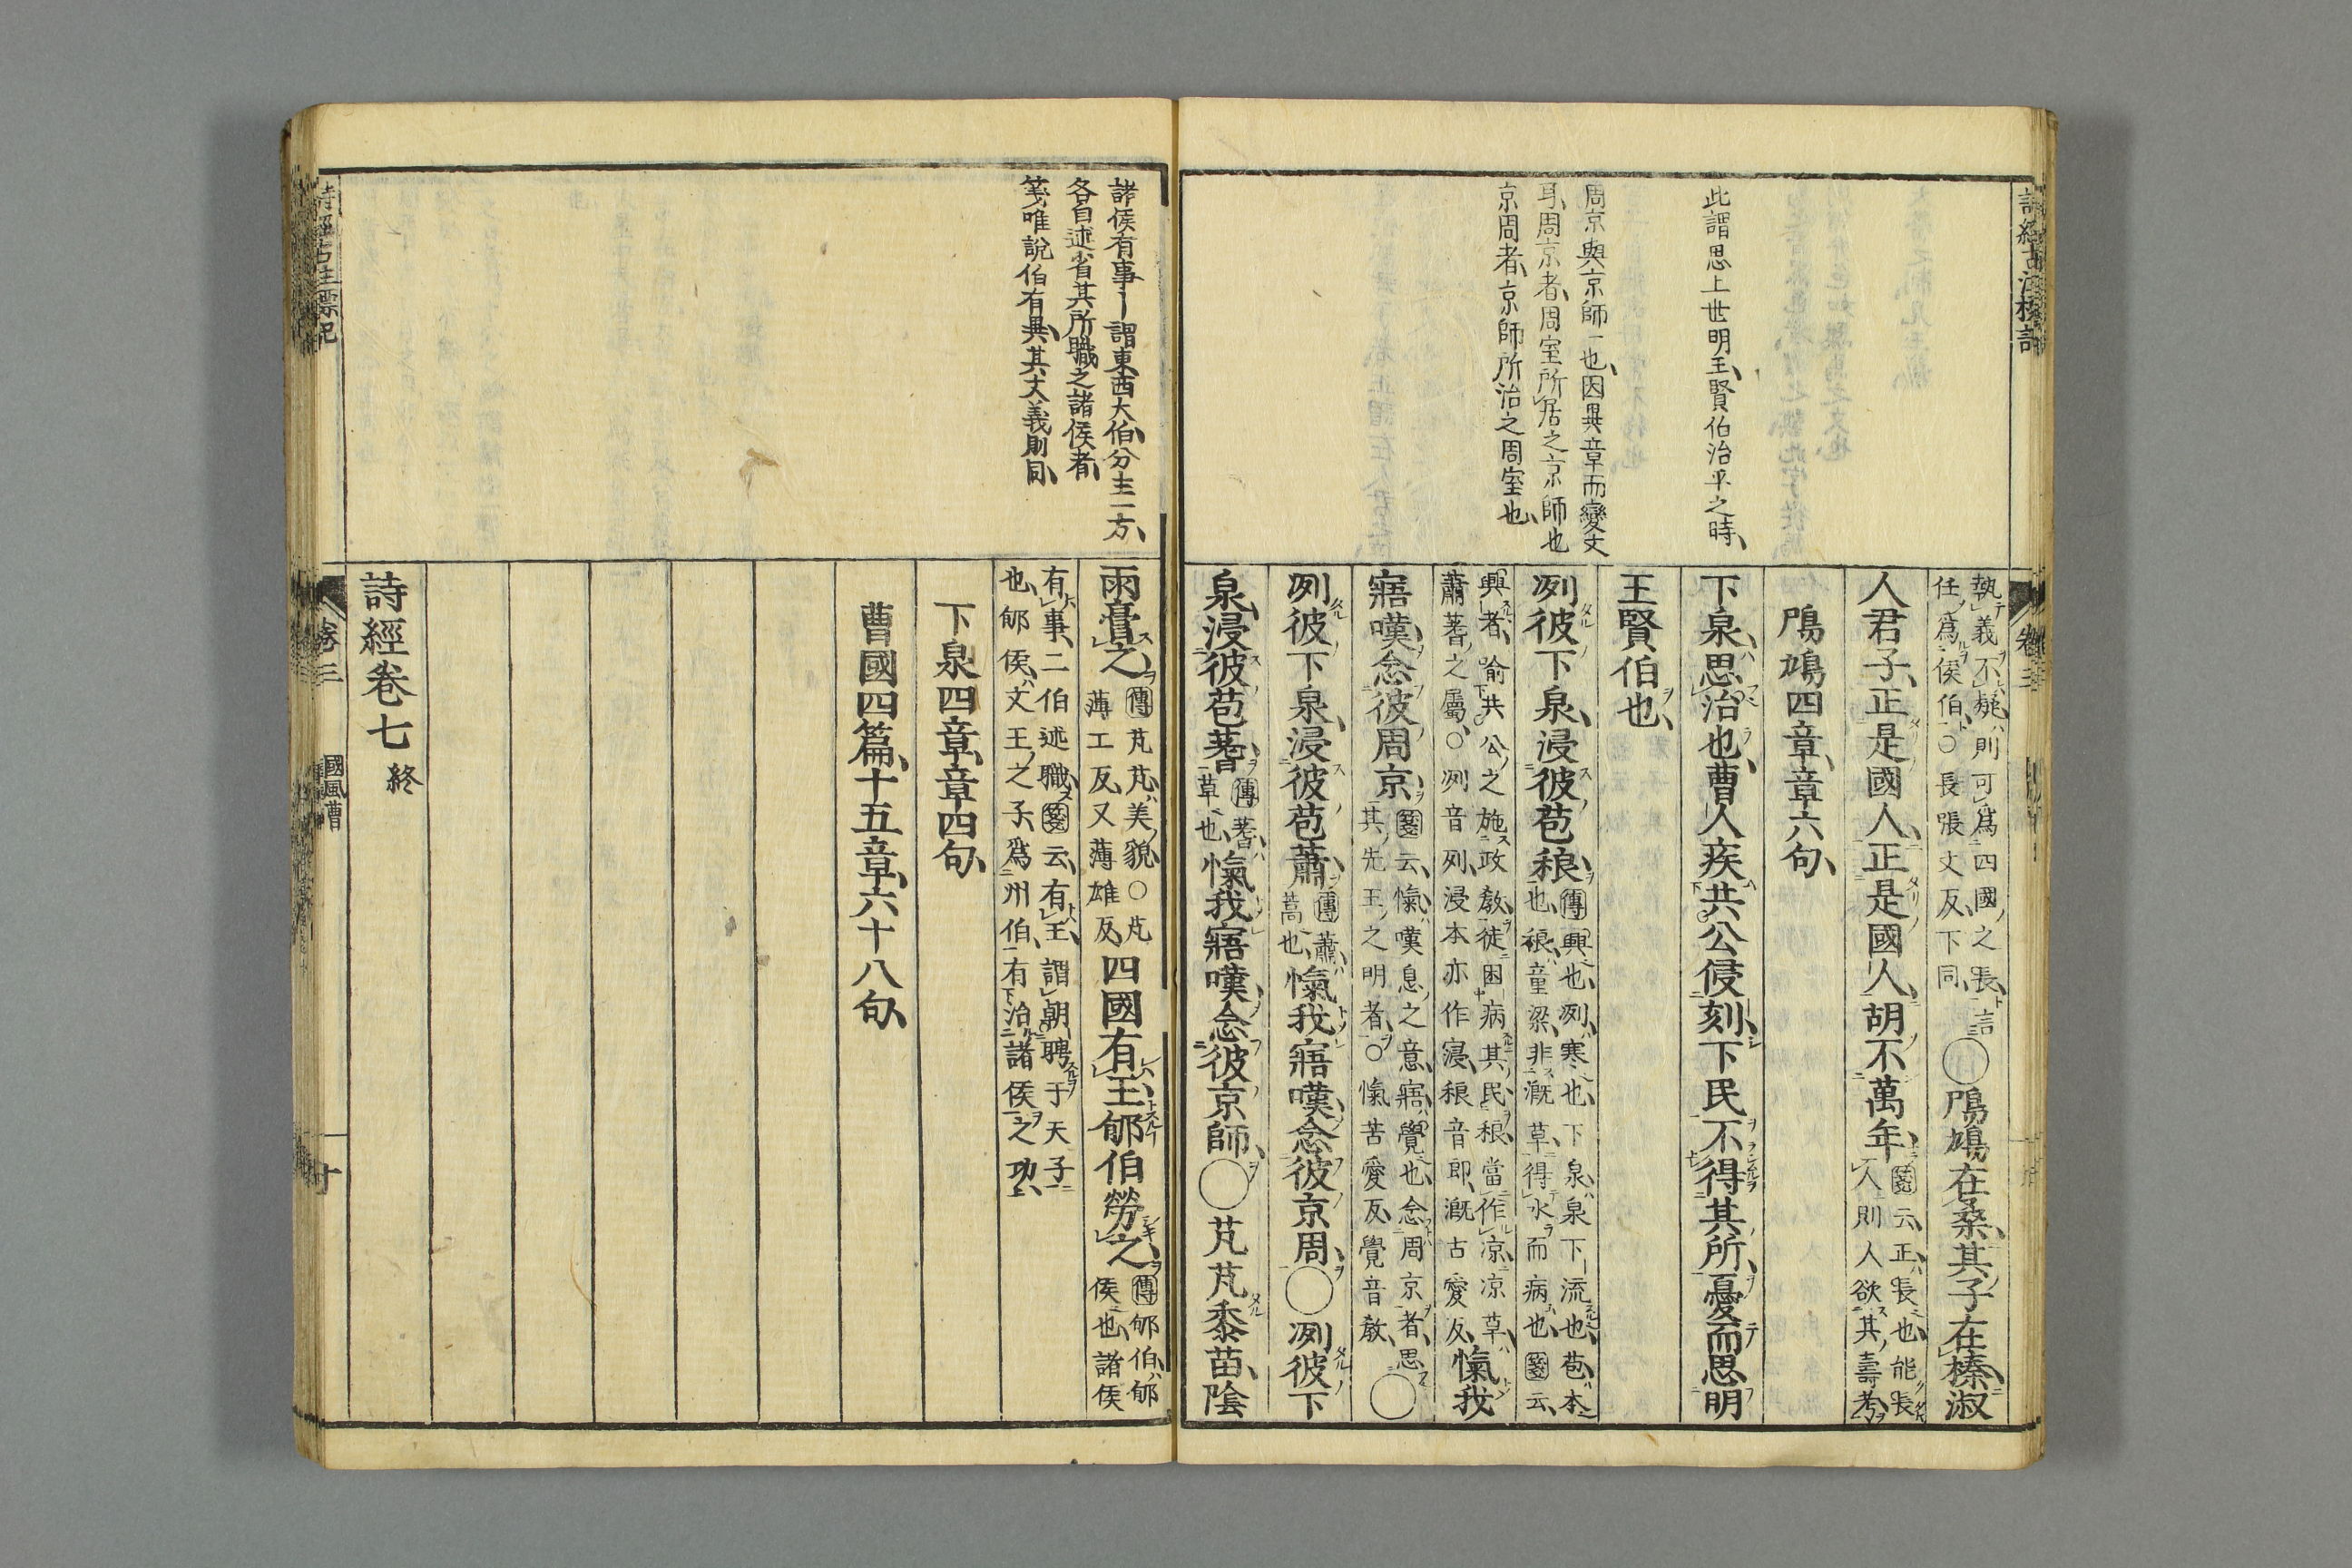 詩經古注標記
此謂思上世明王賢伯治平之時
周京與京師一也因異章而變文
耳周京者周室所居之京師也
京周者京師所治之周室也
執義不疑則可爲四國之長言
任爲侯伯○長張丈反下同
○鳲鳩在桑其子在榛淑
人君子正是國人正是國人胡不萬年
箋云正長也能長
人則人欲其壽考
鳲鳩四章章六句
下泉思治也曹人疾共公侵刻下民不得其所憂而思明
王賢伯也
冽彼下泉浸彼苞稂
傳興也冽寒也下泉泉下流也苞本
也稂童梁非漑草得水而病也箋云
興者喻共公之施政敎徒困病其民稂當作凉凉草
蕭蓍之屬○冽音列浸本亦作寖稂音郎漑古愛反
愾我
寤嘆念彼周京
箋云愾嘆息之意寤覺也念周京者思
其先王之明者○愾苦愛反覺音敎
○
冽彼下泉浸彼苞蕭
傳蕭
蒿也
愾我寤嘆念彼京周○冽彼下
泉浸彼苞蓍
傳蓍
草也
愾我寤嘆念彼京師○芃芃黍苗陰
卷三
諸侯有事ー謂東西大伯分主一方
各自述省其所職之諸侯者
箋唯說伯有異其大義則同
雨膏之
傳芃芃美貌○芃
薄工反又薄雄反
四國有王郇伯勞之
傳郇伯郇
侯也諸侯
有事二伯述職箋云有王謂朝聘于天子
也郇侯文王之子爲州伯有治諸侯之功
下泉四章章四句
曹國四篇十五章六十八句
詩經卷七終
詩經古注標記
卷三
國風曹
十